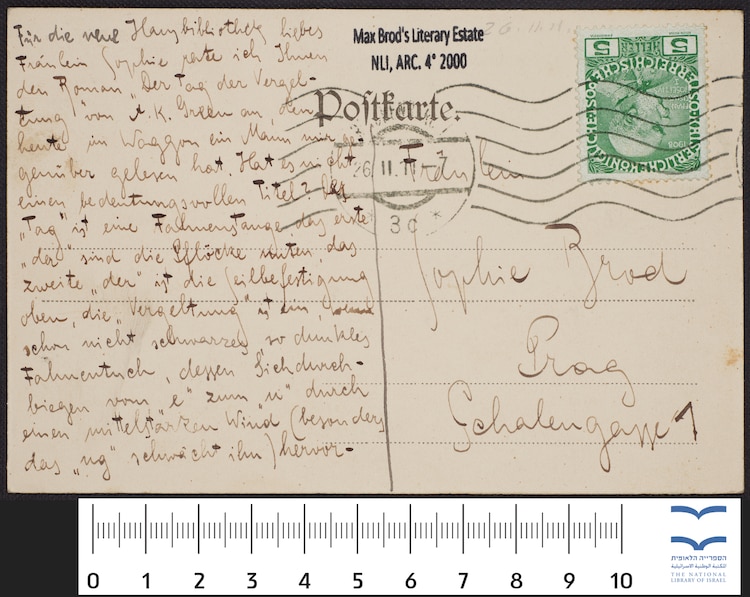 Für die neue Hausbibliothek liebes
Fräulein Sophie rate ich Ihnen
den Roman „Der Tag der Vergel-
tung" von A. K. Green an, den
heute im Waggon ein Mann mir ge-
genüber gelesen hat. Hat es nicht
einen bedeutungsvollen Titel? Der
„Tag" ist eine Fahnenstange, das erste
„der" sind die Pflöcke unten, das
zweite „der" ist die Seilbefestigung
oben, die „Vergeltung" ist ein,
schon nicht schwarzes, so dunkles
Fahnentuch, dessen Sichdurch-
biegen vom „e" zum „u" durch
einen mittelstarken Wind (besonders
das „ng" schwächt ihn) hervor-
Max Brod's Literary Estate
NLI, ARC. 4° 2000
26.II.11.
Postkarte.
26 II 11-7
3c *
5 HELLER 5
1908
Fräulein
Sophie Brod
Prag
Schalengasse 1
0 1 2 3 4 5 6 7 8 9 10
הספרייה הלאומית
المكتبة الوطنية الاسرائيلية
THE NATIONAL
LIBRARY OF ISRAEL